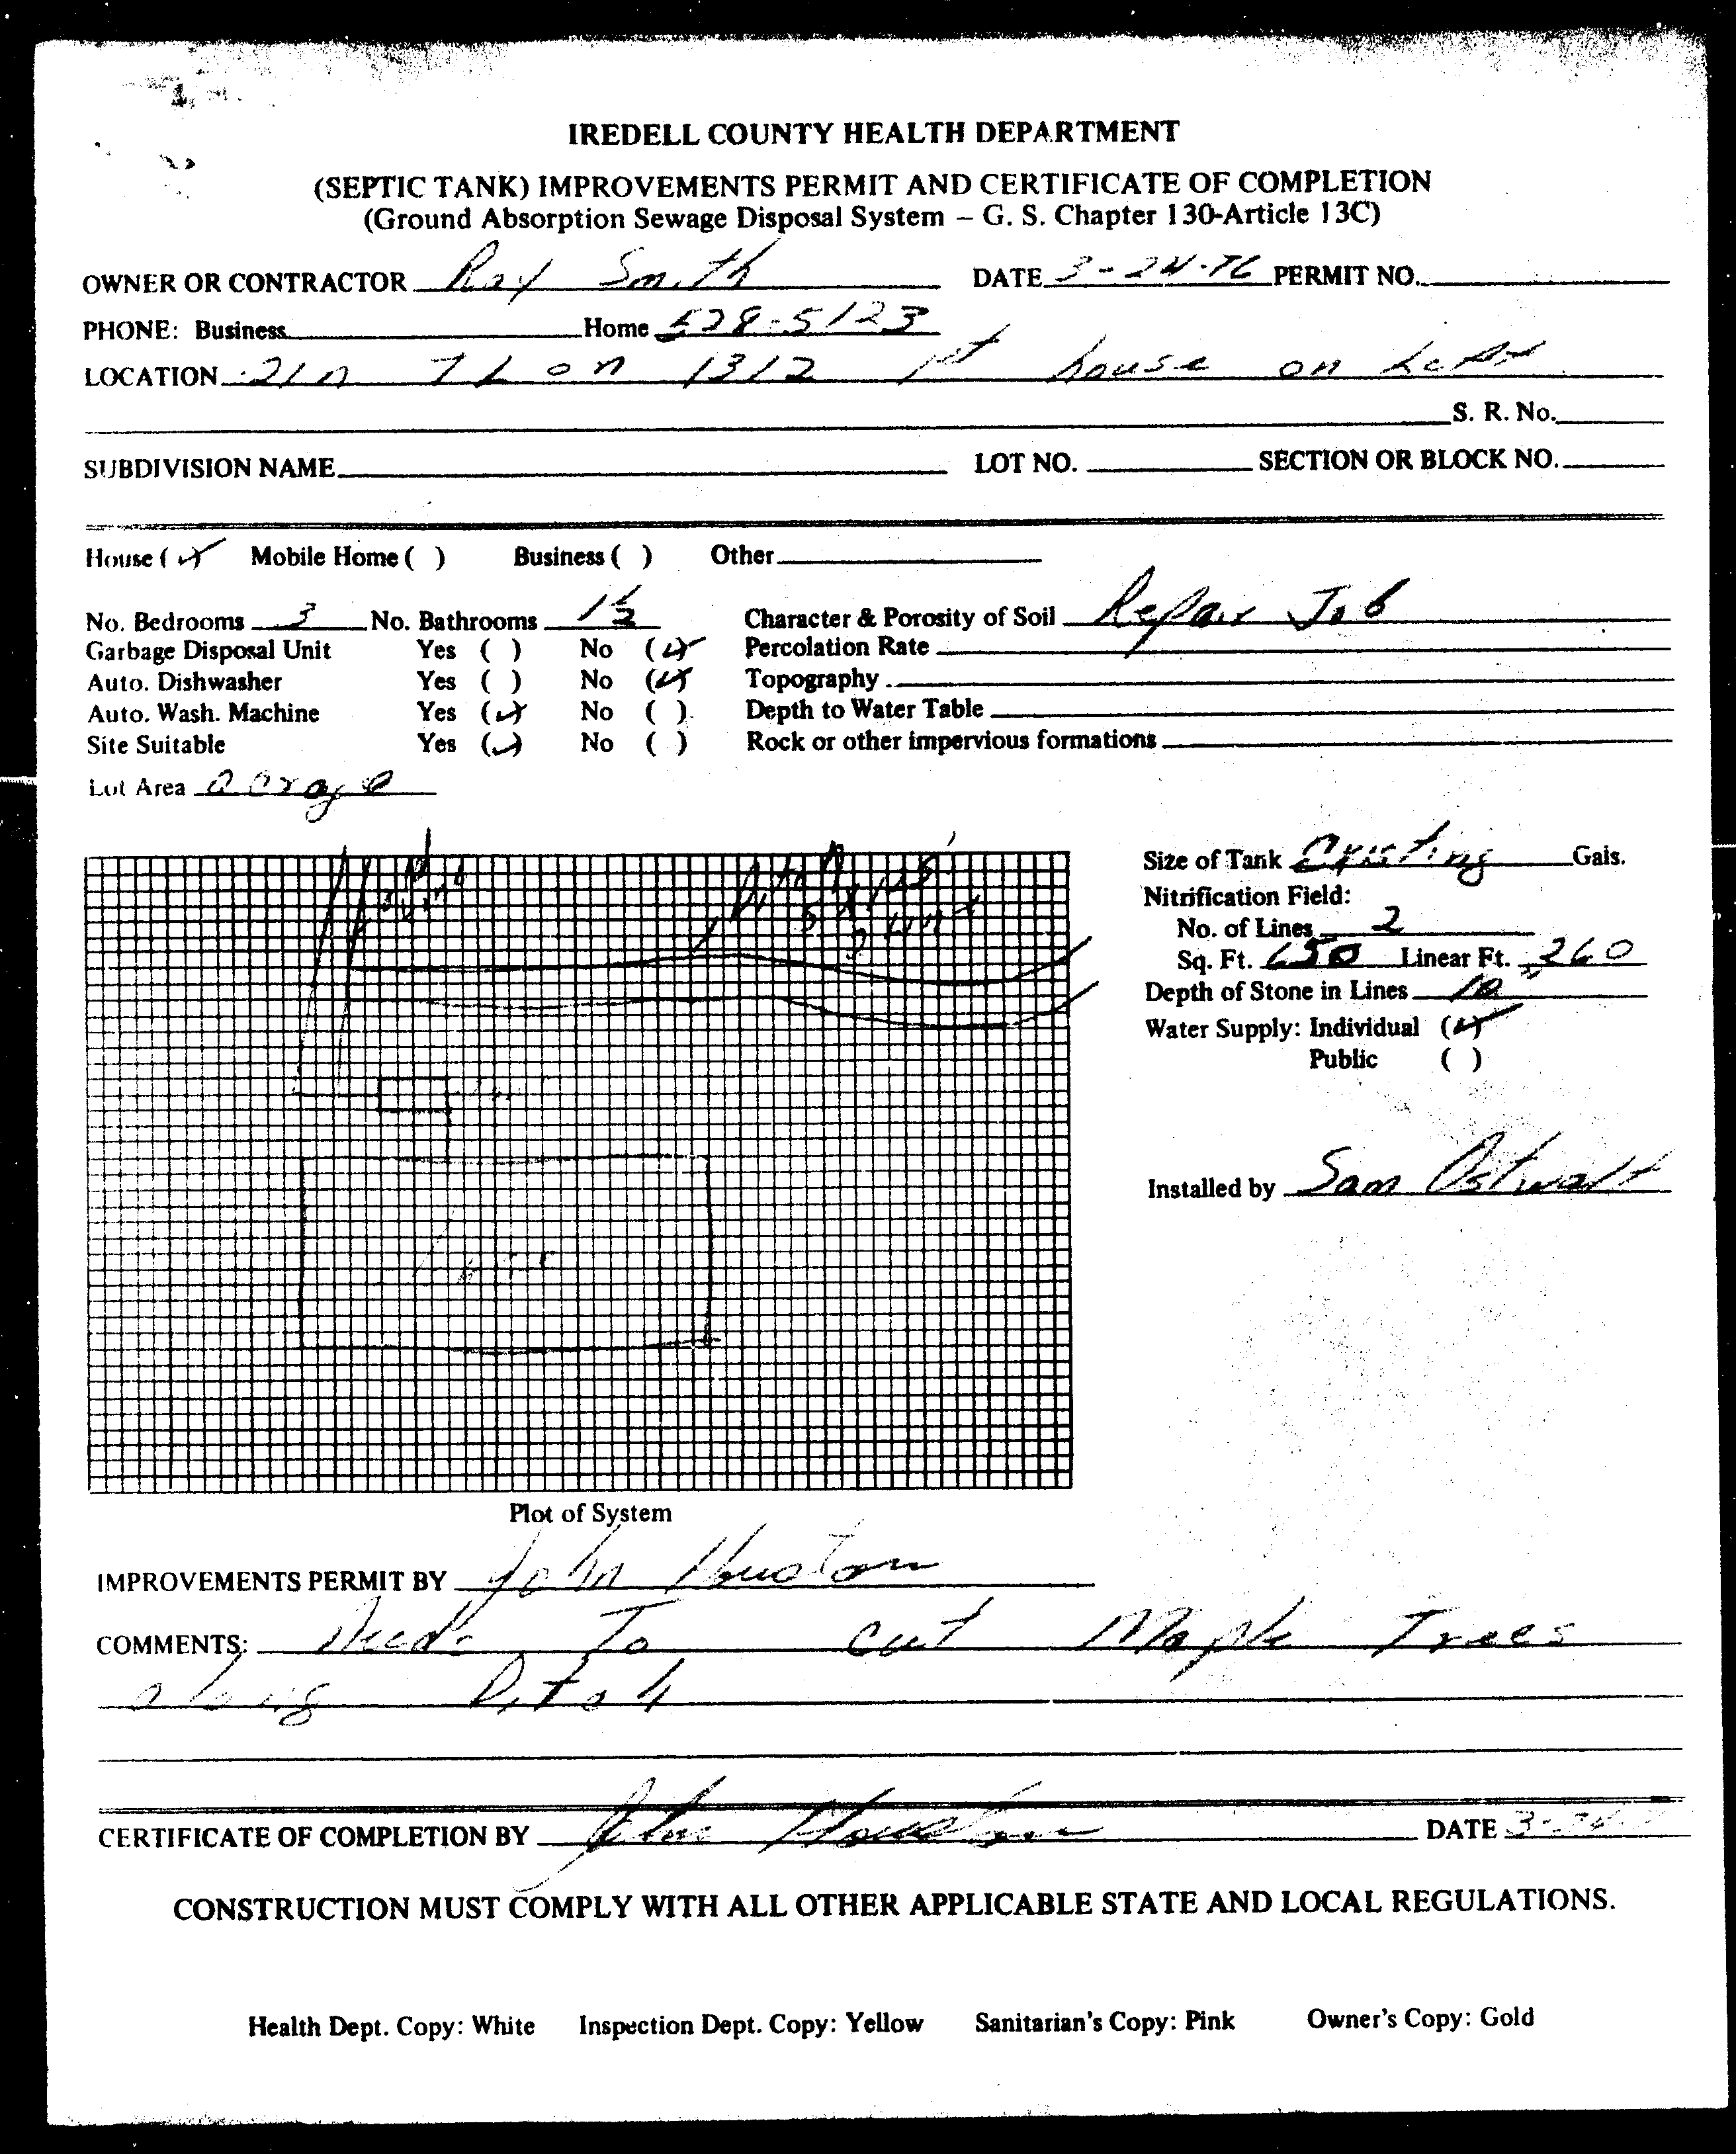 IREDELL COUNTY HEALTH DEPARTMENT
(SEPTIC TANK) IMPROVEMENTS PERMIT AND CERTIFICATE OF COMPLETION
(Ground Absorption Sewage Disposal System – G. S. Chapter 130-Article 13C)
OWNER OR CONTRACTOR Ray Smith DATE 3-24-76 PERMIT NO.
PHONE: Business Home 528-5123
LOCATION 21n TL on 1312 1st house on Left
S. R. No.
SUBDIVISION NAME LOT NO. SECTION OR BLOCK NO.
House (✓) Mobile Home ( ) Business ( ) Other
No. Bedrooms 3 No. Bathrooms 1½ Character & Porosity of Soil Repair Job
Garbage Disposal Unit Yes ( ) No (✓) Percolation Rate
Auto. Dishwasher Yes ( ) No (✓) Topography
Auto. Wash. Machine Yes (✓) No ( ) Depth to Water Table
Site Suitable Yes (✓) No ( ) Rock or other impervious formations
Lot Area acrage
Size of Tank Existing Gals.
Nitrification Field:
No. of Lines 2
Sq. Ft. 650 Linear Ft. 260
Depth of Stone in Lines 10"
Water Supply: Individual (✓)
Public ( )
Installed by Sam Ostwalt
Plot of System
IMPROVEMENTS PERMIT BY John Houston
COMMENTS: Needs To cut Maple Trees
along Ditch
CERTIFICATE OF COMPLETION BY John Houston DATE 3-24-7
CONSTRUCTION MUST COMPLY WITH ALL OTHER APPLICABLE STATE AND LOCAL REGULATIONS.
Health Dept. Copy: White Inspection Dept. Copy: Yellow Sanitarian's Copy: Pink Owner's Copy: Gold